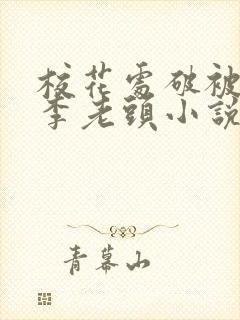 校花處破被
李老頭小說
青幕山